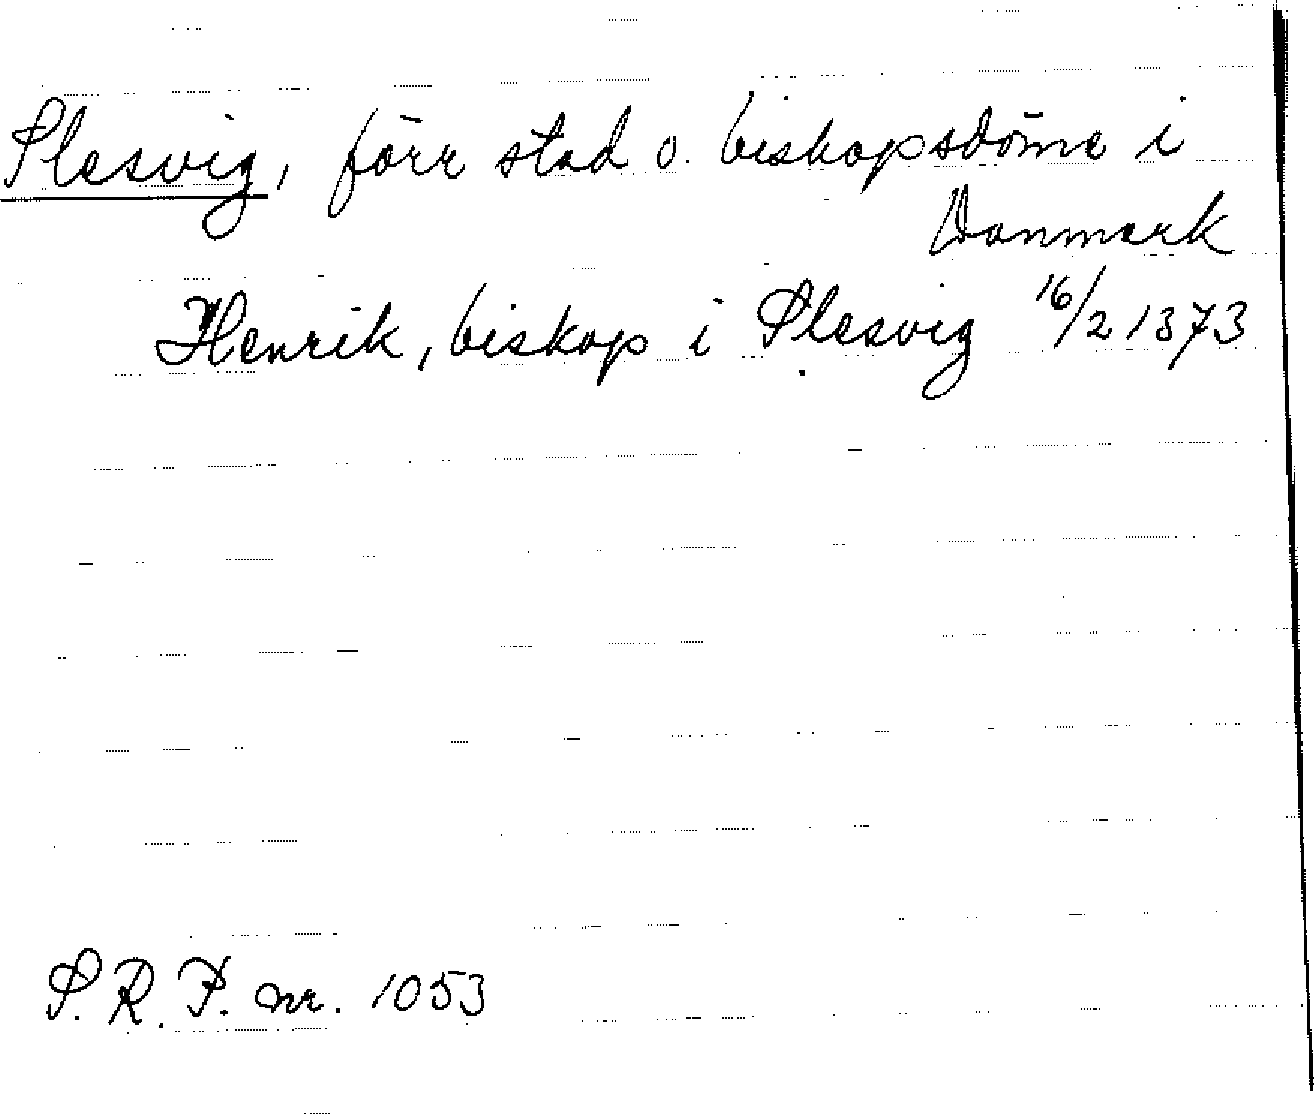 Slesvig, förr stad o. biskopsdöme i
Danmark
Henrik, biskop i Slesvig 16/2 1373
S. R. P. nr. 1053